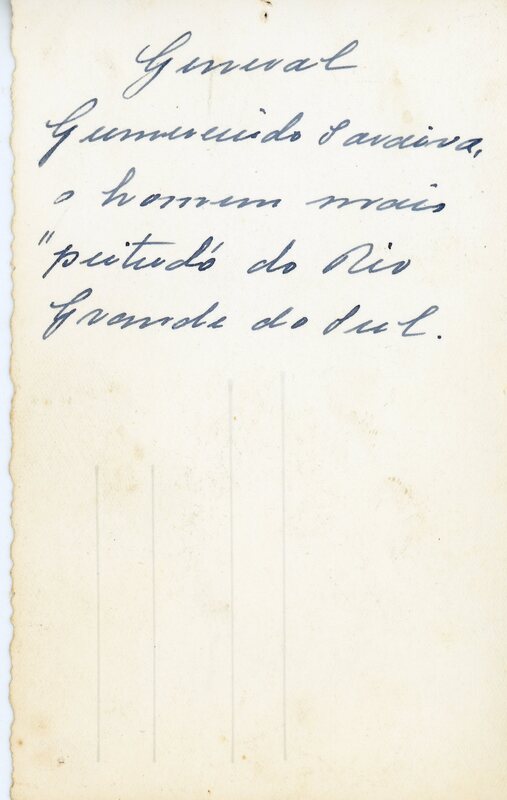 General
Gumercindo Saraiva,
o homem mais
"peitudo" do Rio
Grande do Sul.